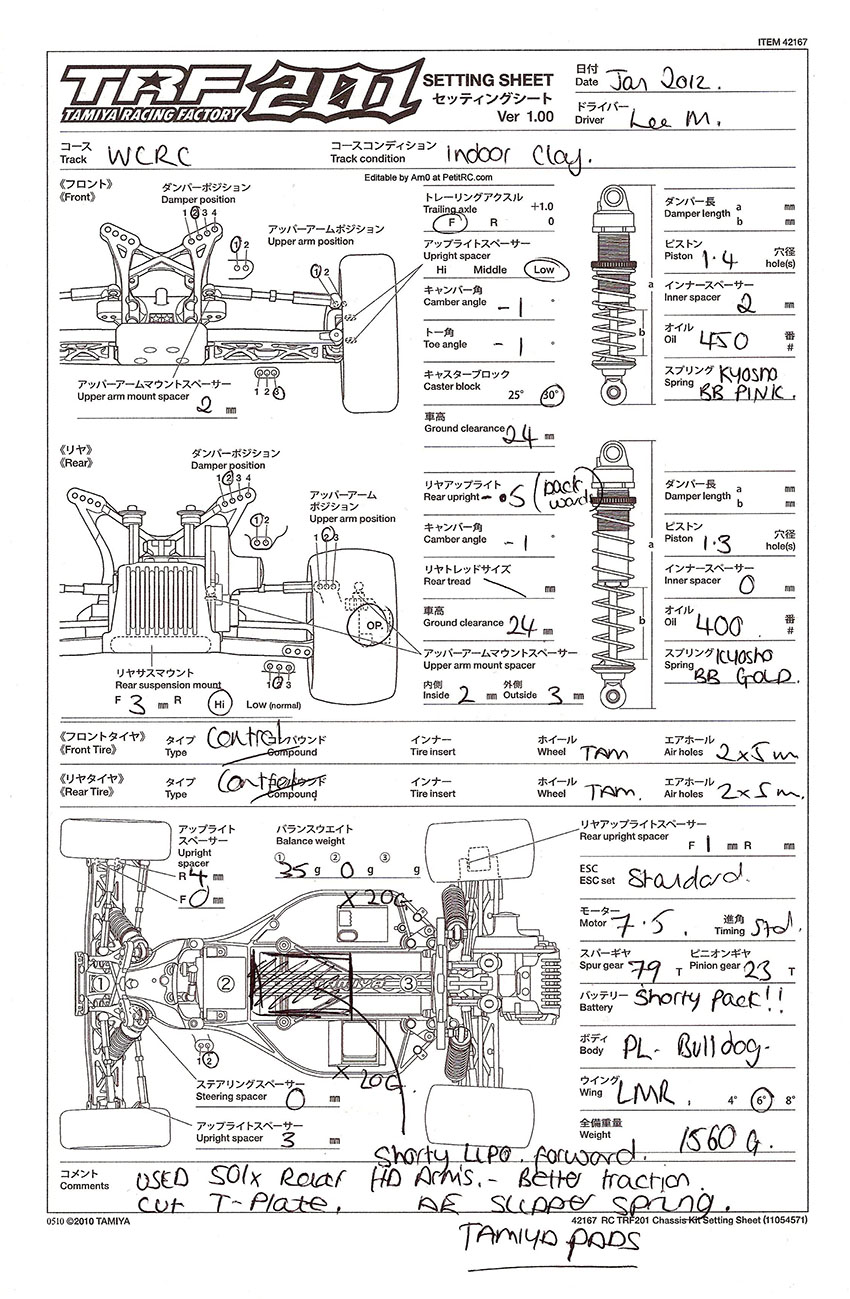 ITEM 42167
TRF 201
TAMIYA RACING FACTORY
SETTING SHEET
セッティングシート
Ver 1.00
日付
Date Jan 2012.
ドライバー
Driver Lee M.
コース
Track WCRC
コースコンディション
Track condition indoor Clay.
Editable by Arn0 at PetitRC.com
《フロント》
《Front》
ダンパーポジション
Damper position
1 2 3 4
1 2
アッパーアームポジション
Upper arm position
1 2
アッパーアームマウントスペーサー
Upper arm mount spacer
2 mm
1 2 3
トレーリングアクスル
Trailing axle
+1.0
F R 0
アップライトスペーサー
Upright spacer
Hi Middle Low
キャンバー角
Camber angle -1 °
トー角
Toe angle -1 °
キャスターブロック
Caster block 25° 30°
車高
Ground clearance 24 mm
a
b
ダンパー長
Damper length a mm
b mm
ピストン
Piston 1.4
穴径
hole(s)
インナースペーサー
Inner spacer 2 mm
オイル
Oil 450
番
#
スプリング
Spring KYOSHO
BB PINK.
《リヤ》
《Rear》
ダンパーポジション
Damper position
1 2 3 4
1 2
アッパーアーム
ポジション
Upper arm position
1 2 3
OP.
1 2 3
リヤサスマウント
Rear suspension mount
F 3 mm R Hi Low (normal)
リヤアップライト
Rear upright -.5 (back
wards)
キャンバー角
Camber angle -1 °
リヤトレッドサイズ
Rear tread mm
車高
Ground clearance 24 mm
アッパーアームマウントスペーサー
Upper arm mount spacer
内側
Inside 2 mm
外側
Outside 3 mm
a
b
ダンパー長
Damper length a mm
b mm
ピストン
Piston 1.3
穴径
hole(s)
インナースペーサー
Inner spacer 0 mm
オイル
Oil 400
番
#
スプリング
Spring KYOSHO
BB GOLD.
《フロントタイヤ》
《Front Tire》
タイプ
Type Control
コンパウンド
Compound
インナー
Tire insert
ホイール
Wheel TAM
エアホール
Air holes 2x5m
《リヤタイヤ》
《Rear Tire》
タイプ
Type Control
コンパウンド
Compound
インナー
Tire insert
ホイール
Wheel TAM.
エアホール
Air holes 2x5m.
アップライト
スペーサー
Upright
spacer
R 4 mm
F 0 mm
バランスウエイト
Balance weight
① 35 g ② 0 g ③ g
X 20G
① ② ③
TAMIYA
1 2
X 20G
ステアリングスペーサー
Steering spacer 0 mm
アップライトスペーサー
Upright spacer 3 mm
リヤアップライトスペーサー
Rear upright spacer
F 1 mm R mm
ESC
ESC set Standard.
モーター
Motor 7.5.
進角
Timing Std.
スパーギヤ
Spur gear 79 T
ピニオンギヤ
Pinion gear 23 T
バッテリー
Battery Shorty Pack!!
ボディ
Body PL- Bulldog-
ウイング
Wing LMR, 4° 6° 8°
全備重量
Weight 1560 G.
Shorty LIPO. forward.
コメント
Comments USED 501x Rear HD Arms. - Better traction.
CUT T-Plate. AE SLIPPER SPRING.
TAMIYA PADS
0510 ©2010 TAMIYA
42167 RC TRF201 Chassis Kit Setting Sheet (11054571)